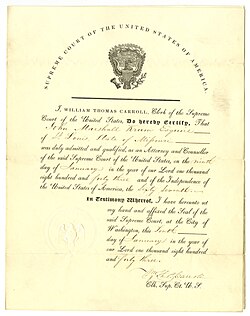 SUPREME COURT OF THE UNITED STATES OF AMERICA.
I, WILLIAM THOMAS CARROLL, Clerk of the Supreme
Court of the United States, Do hereby Certify, That
John Marshall Esquire
of St Louis State of Missouri
was duly admitted and qualified, as an Attorney and Counsellor
of the said Supreme Court of the United States, on the
day of January in the year of our Lord one thousand
eight hundred and forty three and of the Independence of
the United States of America, the Sixty
In Testimony Whereof, I have hereunto set
my hand and affixed the Seal of the
said Supreme Court, at the City of
Washington, this
day of January in the year of
our Lord one thousand eight hundred
and forty three.
Clk. Sup. Ct. U. S.